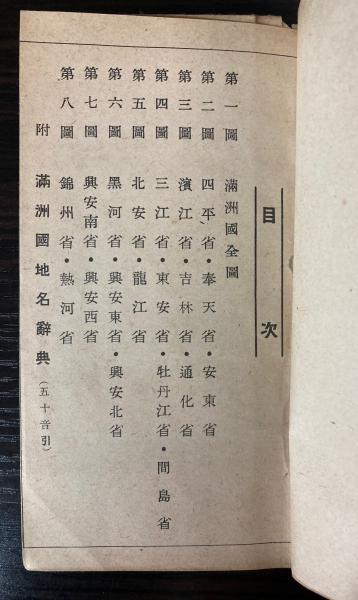 目次
第一圖 滿洲國全圖
第二圖 四平省・奉天省・安東省
第三圖 濱江省・吉林省・通化省
第四圖 三江省・東安省・牡丹江省・間島省
第五圖 北安省・龍江省
第六圖 黑河省・興安東省・興安北省
第七圖 興安南省・興安西省
第八圖 錦州省・熱河省
附 滿洲國地名辭典(五十音引)